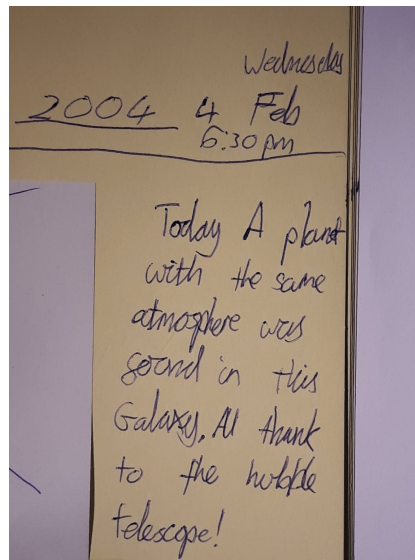 Wednesday
2004 4 Feb
6:30pm
Today A planet
with the same
atmosphere was
goond in this
Galaxy. All thank
to the hubble
telescope!